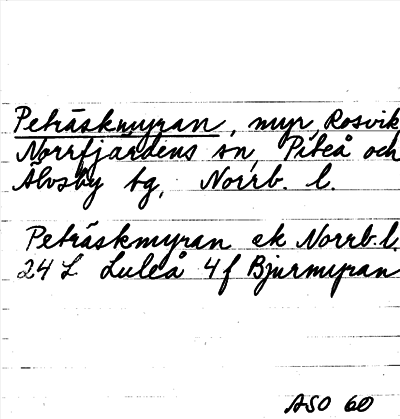 Peträskmyran, myr, Rosvik
Norrfjärdens sn, Piteå och
Älvsby tg, Norrb. l.
Peträskmyran ek Norrb.l.
24 L Luleå 4f Bjurmyran
ASO 60